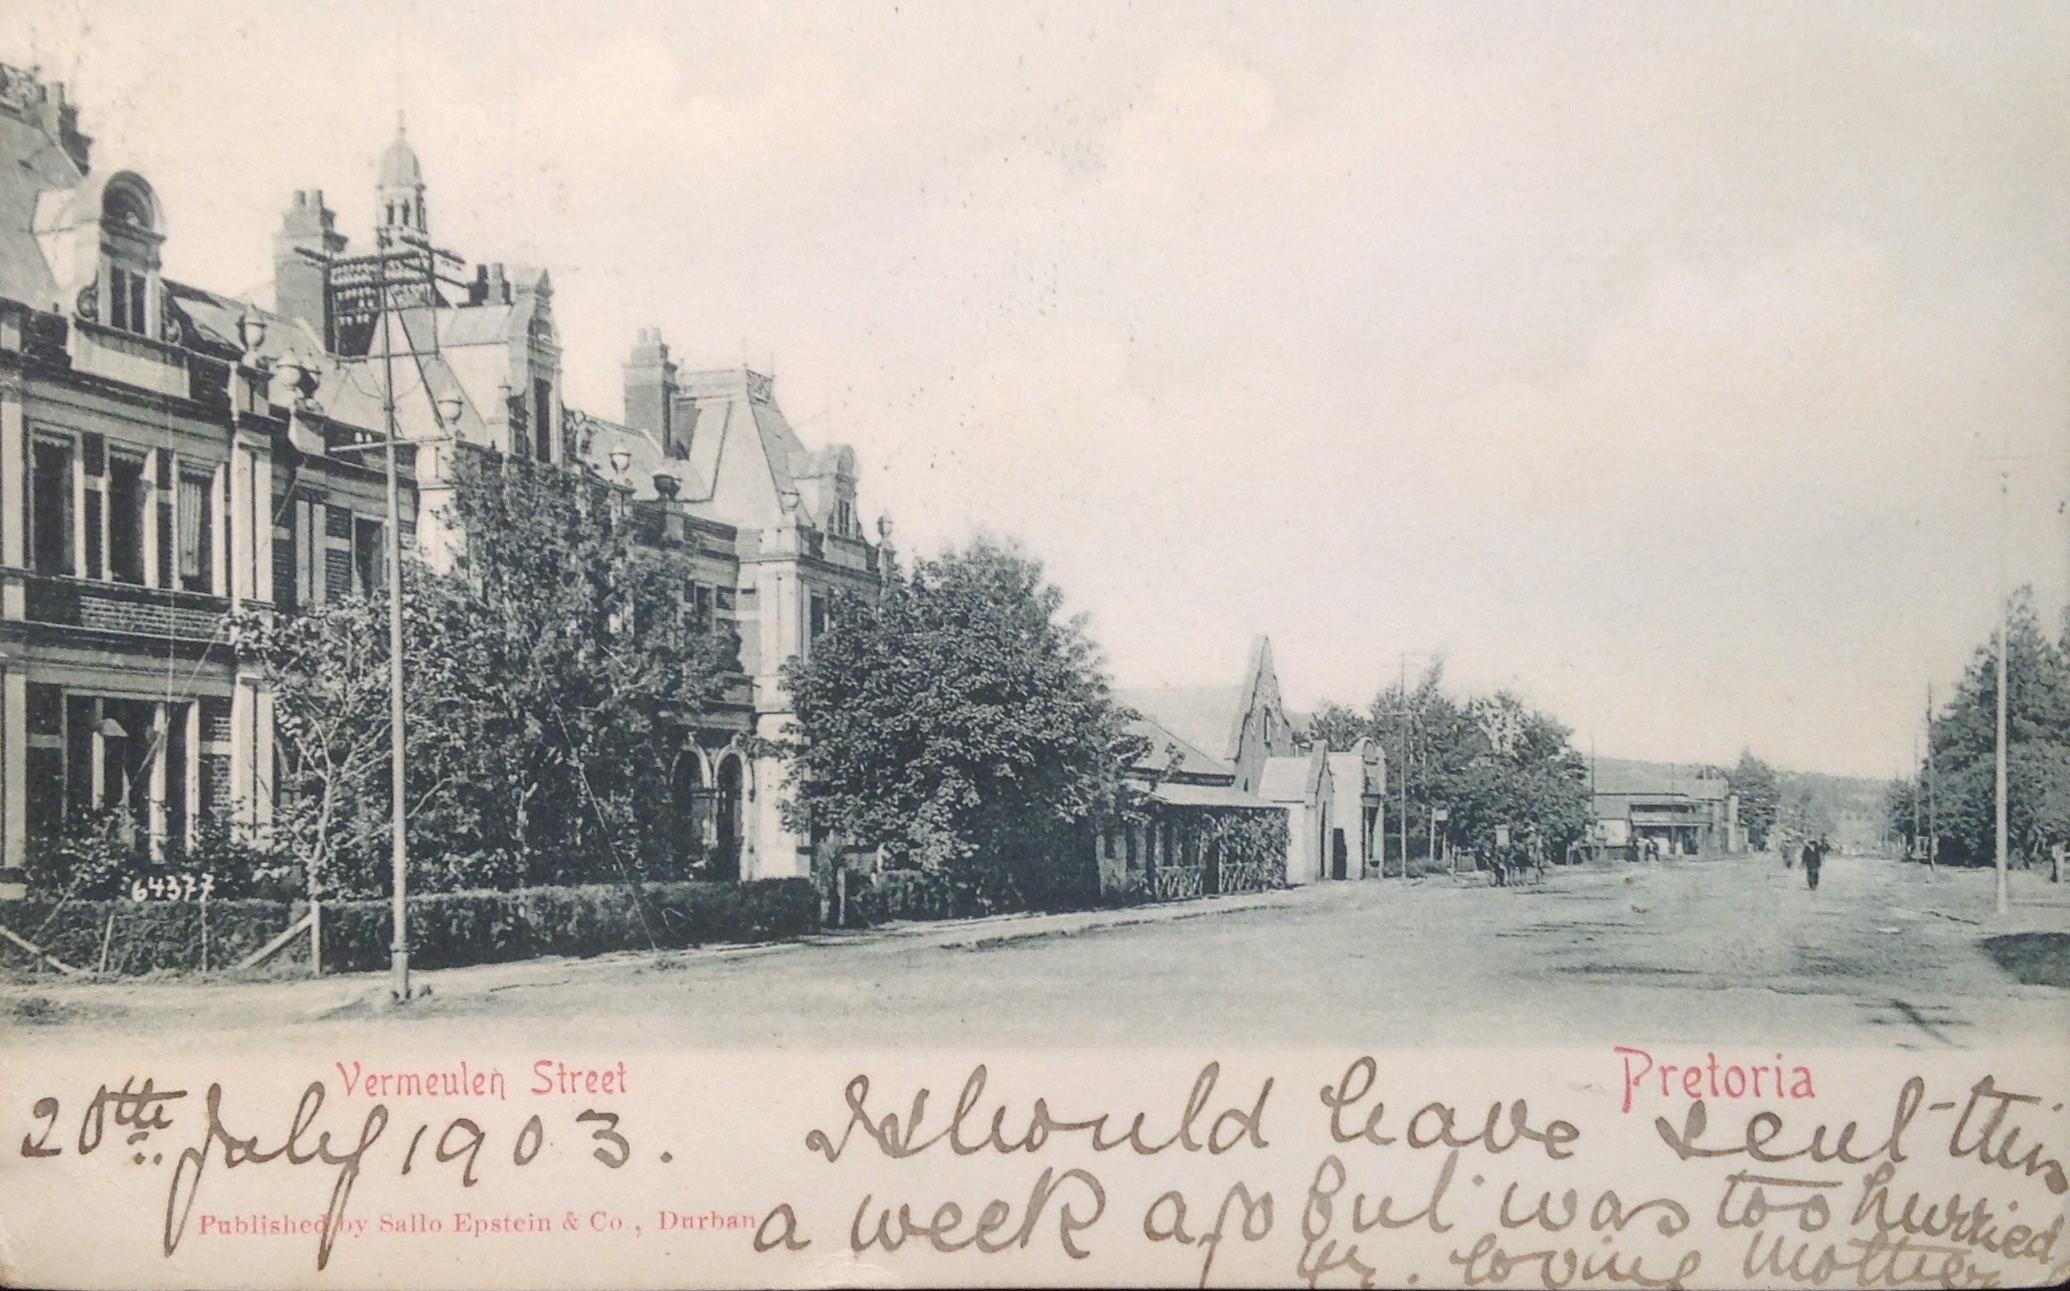 64377
Vermeulen Street
Pretoria
20th July 1903. I should have sent this
Published by Sallo Epstein & Co., Durban
a week ago but was too hurried
Yr. loving Mother